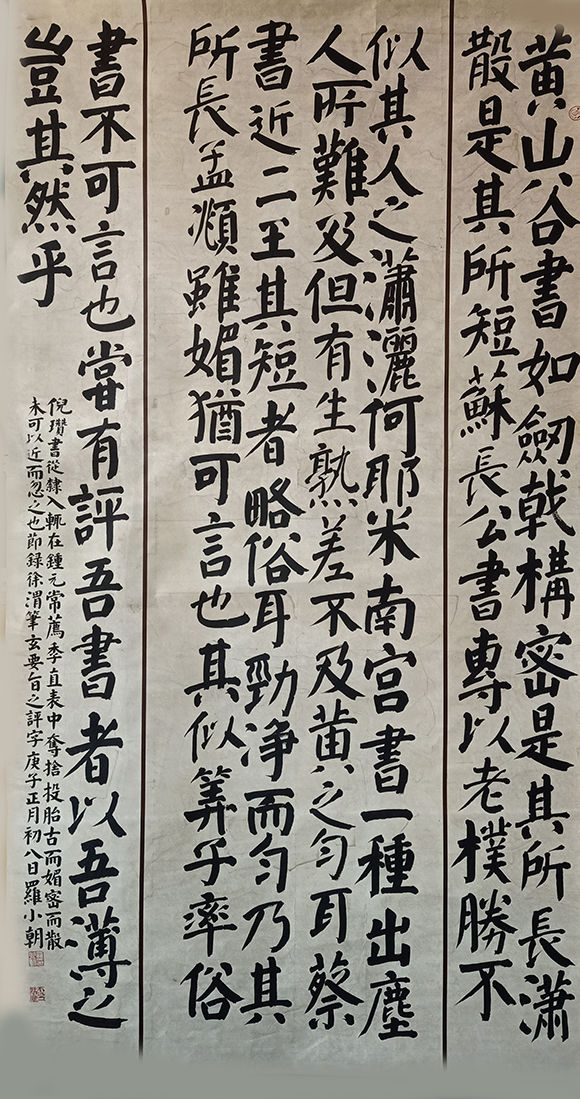 黃山谷書如劒戟構密是其所長瀟
散是其所短蘇長公書專以老樸勝不
似其人之瀟灑何耶米南宮書一種出塵
人所難及但有生熟差不及黃之勻耳蔡
書近二王其短者略俗耳勁淨而勻乃其
所長孟頫雖媚猶可言也其似筭子率俗
書不可言也嘗有評吾書者以吾薄之
豈其然乎
倪瓚書從隸入輒在鍾元常薦季直表中奪捨投胎古而媚密而散
未可以近而忽之也節録徐渭筆玄要旨之評字庚子正月初八日羅小朝